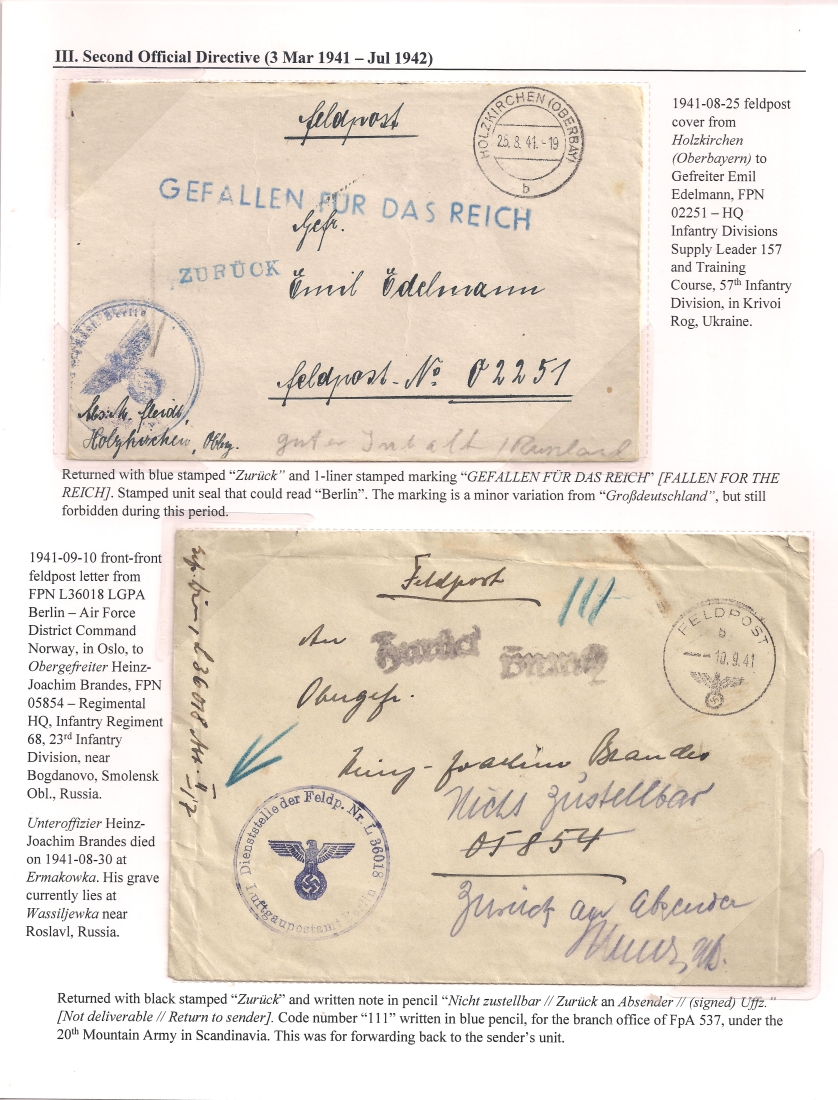 III. Second Official Directive (3 Mar 1941 – Jul 1942)
Feldpost
HOLZKIRCHEN (OBERBAY)
25.8.41.-19
b
GEFALLEN FÜR DAS REICH
Gefr.
ZURÜCK
Emil Edelmann
Feldpost-No 02251
Berlin
Holzkirchen, Obby.
guter Inhalt / Russland
1941-08-25 feldpost
cover from
Holzkirchen
(Oberbayern) to
Gefreiter Emil
Edelmann, FPN
02251 – HQ
Infantry Divisions
Supply Leader 157
and Training
Course, 57th Infantry
Division, in Krivoi
Rog, Ukraine.
Returned with blue stamped “Zurück” and 1-liner stamped marking “GEFALLEN FÜR DAS REICH” [FALLEN FOR THE
REICH]. Stamped unit seal that could read “Berlin”. The marking is a minor variation from “Großdeutschland”, but still
forbidden during this period.
1941-09-10 front-front
feldpost letter from
FPN L36018 LGPA
Berlin – Air Force
District Command
Norway, in Oslo, to
Obergefreiter Heinz-
Joachim Brandes, FPN
05854 – Regimental
HQ, Infantry Regiment
68, 23rd Infantry
Division, near
Bogdanovo, Smolensk
Obl., Russia.
Unteroffizier Heinz-
Joachim Brandes died
on 1941-08-30 at
Ermakowka. His grave
currently lies at
Wassiljewka near
Roslavl, Russia.
Feldpost
111
FELDPOST
b
10.9.41
An
Zurück Zurück
Obergefr.
Heinz-Joachim Brandes
Nicht Zustellbar
05854
Zurück an Absender
L36018
Dienststelle der Feldp. Nr. L 36018
Luftgaupostamt Berlin
Returned with black stamped “Zurück” and written note in pencil “Nicht zustellbar // Zurück an Absender // (signed) Uffz.”
[Not deliverable // Return to sender]. Code number “111” written in blue pencil, for the branch office of FpA 537, under the
20th Mountain Army in Scandinavia. This was for forwarding back to the sender’s unit.